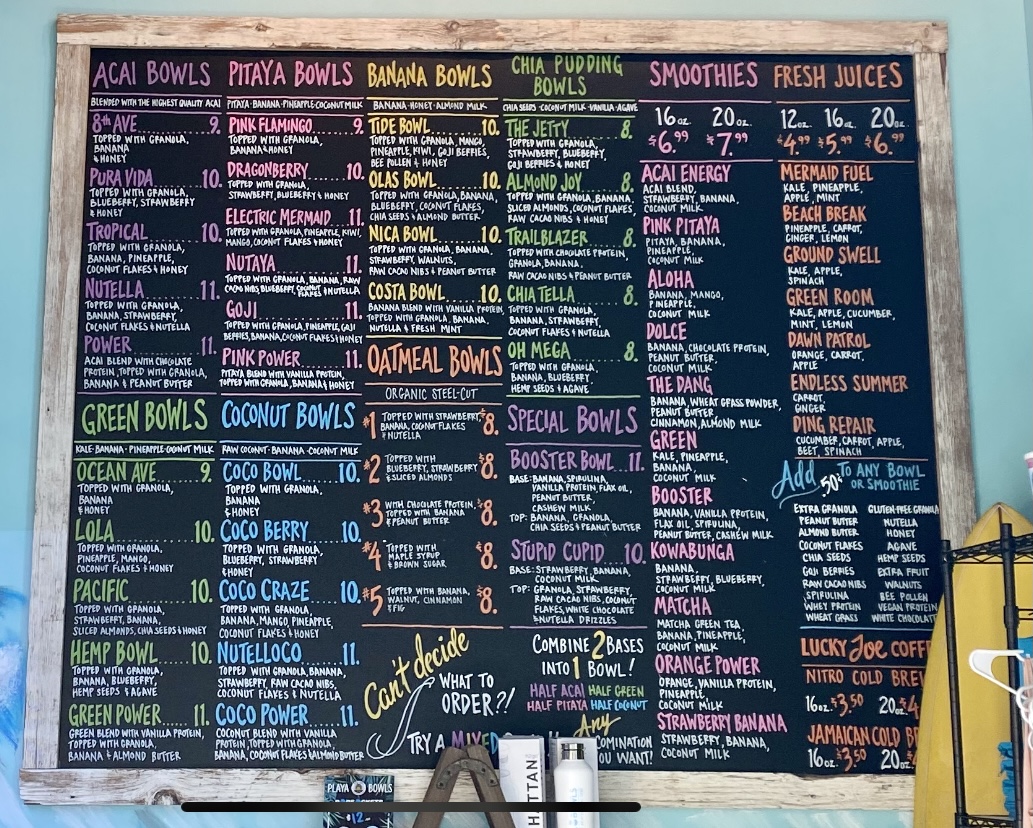 ACAI BOWLS
BLENDED WITH THE HIGHEST QUALITY ACAI
8th AVE 9.
TOPPED WITH GRANOLA,
BANANA
& HONEY
PURA VIDA 10.
TOPPED WITH GRANOLA,
BLUEBERRY, STRAWBERRY
& HONEY
TROPICAL 10.
TOPPED WITH GRANOLA,
BANANA, PINEAPPLE,
COCONUT FLAKES & HONEY
NUTELLA 11.
TOPPED WITH GRANOLA,
BANANA, STRAWBERRY,
COCONUT FLAKES & NUTELLA
POWER 11.
ACAI BLEND WITH CHOCOLATE
PROTEIN, TOPPED WITH GRANOLA,
BANANA & PEANUT BUTTER
GREEN BOWLS
KALE·BANANA·PINEAPPLE·COCONUT MILK
OCEAN AVE 9.
TOPPED WITH GRANOLA,
BANANA
& HONEY
LOLA 10.
TOPPED WITH GRANOLA,
PINEAPPLE, MANGO,
COCONUT FLAKES & HONEY
PACIFIC 10.
TOPPED WITH GRANOLA,
STRAWBERRY, BANANA,
SLICED ALMONDS, CHIA SEEDS & HONEY
HEMP BOWL 10.
TOPPED WITH GRANOLA,
BANANA, BLUEBERRY,
HEMP SEEDS & AGAVE
GREEN POWER 11.
GREEN BLEND WITH VANILLA PROTEIN,
TOPPED WITH GRANOLA,
BANANA & ALMOND BUTTER
PITAYA BOWLS
PITAYA·BANANA·PINEAPPLE·COCONUT MILK
PINK FLAMINGO 9.
TOPPED WITH GRANOLA,
BANANA & HONEY
DRAGONBERRY 10.
TOPPED WITH GRANOLA,
STRAWBERRY, BLUEBERRY & HONEY
ELECTRIC MERMAID 11.
TOPPED WITH GRANOLA, PINEAPPLE, KIWI,
MANGO, COCONUT FLAKES & HONEY
NUTAYA 11.
TOPPED WITH GRANOLA, BANANA, RAW
CACAO NIBS BLUEBERRY COCONUT FLAKES & NUTELLA
GOJI 11.
TOPPED WITH GRANOLA, PINEAPPLE, GOJI
BERRIES, BANANA, COCONUT FLAKES & HONEY
PINK POWER 11.
PITAYA BLEND WITH VANILLA PROTEIN,
TOPPED WITH GRANOLA, BANANA & HONEY
COCONUT BOWLS
RAW COCONUT·BANANA·COCONUT MILK
COCO BOWL 10.
TOPPED WITH GRANOLA,
BANANA
& HONEY
COCO BERRY 10.
TOPPED WITH GRANOLA,
BLUEBERRY, STRAWBERRY
& HONEY
COCO CRAZE 10.
TOPPED WITH GRANOLA,
BANANA, MANGO, PINEAPPLE,
COCONUT FLAKES & HONEY
NUTELLOCO 11.
TOPPED WITH GRANOLA, BANANA,
STRAWBERRY, RAW CACAO NIBS,
COCONUT FLAKES & NUTELLA
COCO POWER 11.
COCONUT BLEND WITH VANILLA
PROTEIN, TOPPED WITH GRANOLA,
BANANA, COCONUT FLAKES & ALMOND BUTTER
BANANA BOWLS
BANANA·HONEY·ALMOND MILK
TIDE BOWL 10.
TOPPED WITH GRANOLA, MANGO,
PINEAPPLE, KIWI, GOJI BERRIES,
BEE POLLEN & HONEY
OLAS BOWL 10.
TOPPED WITH GRANOLA, BANANA,
BLUEBERRY, COCONUT FLAKES,
CHIA SEEDS & ALMOND BUTTER
NICA BOWL 10.
TOPPED WITH GRANOLA, BANANA,
STRAWBERRY, WALNUTS,
RAW CACAO NIBS & PEANUT BUTTER
COSTA BOWL 10.
BANANA BLEND WITH VANILLA PROTEIN,
TOPPED WITH GRANOLA, BANANA,
NUTELLA & FRESH MINT
OATMEAL BOWLS
ORGANIC STEEL-CUT
#1 TOPPED WITH STRAWBERRY, BANANA, COCONUT FLAKES & NUTELLA $8.
#2 TOPPED WITH BLUEBERRY, STRAWBERRY & SLICED ALMONDS $8.
#3 WITH CHOCOLATE PROTEIN, TOPPED WITH BANANA & PEANUT BUTTER $8.
#4 TOPPED WITH MAPLE SYRUP & BROWN SUGAR $8.
#5 TOPPED WITH BANANA, WALNUT, CINNAMON & FIG $8.
Can't decide
WHAT TO
ORDER?!
TRY A MIXED
CHIA PUDDING
BOWLS
CHIA SEEDS·COCONUT MILK·VANILLA·AGAVE
THE JETTY 8.
TOPPED WITH GRANOLA,
STRAWBERRY, BLUEBERRY,
GOJI BERRIES & HONEY
ALMOND JOY 8.
TOPPED WITH GRANOLA, BANANA,
SLICED ALMONDS, COCONUT FLAKES,
RAW CACAO NIBS & HONEY
TRAILBLAZER 8.
TOPPED WITH CHOCOLATE PROTEIN,
GRANOLA, BANANA,
RAW CACAO NIBS & PEANUT BUTTER
CHIA TELLA 8.
TOPPED WITH GRANOLA,
BANANA, STRAWBERRY,
COCONUT FLAKES & NUTELLA
OH MEGA 8.
TOPPED WITH GRANOLA,
BANANA, BLUEBERRY,
HEMP SEEDS & AGAVE
SPECIAL BOWLS
BOOSTER BOWL 11.
BASE: BANANA, SPIRULINA,
VANILLA PROTEIN, FLAX OIL,
PEANUT BUTTER,
CASHEW MILK
TOP: BANANA, GRANOLA,
CHIA SEEDS & PEANUT BUTTER
STUPID CUPID 10.
BASE: STRAWBERRY, BANANA,
COCONUT MILK
TOP: GRANOLA, STRAWBERRY,
RAW CACAO NIBS, COCONUT
FLAKES, WHITE CHOCOLATE
& NUTELLA DRIZZLES
COMBINE 2 BASES
INTO 1 BOWL!
HALF ACAI HALF GREEN
HALF PITAYA HALF COCONUT
Any
COMINATION
YOU WANT!
SMOOTHIES
16 oz. 20 oz.
$6.99 $7.99
ACAI ENERGY
ACAI BLEND,
STRAWBERRY, BANANA,
COCONUT MILK
PINK PITAYA
PITAYA, BANANA,
PINEAPPLE,
COCONUT MILK
ALOHA
BANANA, MANGO,
PINEAPPLE,
COCONUT MILK
DOLCE
BANANA, CHOCOLATE PROTEIN,
PEANUT BUTTER,
COCONUT MILK
THE DANG
BANANA, WHEAT GRASS POWDER,
PEANUT BUTTER
CINNAMON, ALMOND MILK
GREEN
KALE, PINEAPPLE,
BANANA,
COCONUT MILK
BOOSTER
BANANA, VANILLA PROTEIN,
FLAX OIL, SPIRULINA,
PEANUT BUTTER, CASHEW MILK
KOWABUNGA
BANANA,
STRAWBERRY, BLUEBERRY,
COCONUT MILK
MATCHA
MATCHA GREEN TEA
BANANA, PINEAPPLE,
COCONUT MILK
ORANGE POWER
ORANGE, VANILLA PROTEIN,
PINEAPPLE,
COCONUT MILK
STRAWBERRY BANANA
STRAWBERRY, BANANA,
COCONUT MILK
FRESH JUICES
12 oz. 16 oz. 20 oz.
$4.99 $5.99 $6.99
MERMAID FUEL
KALE, PINEAPPLE,
APPLE, MINT
BEACH BREAK
PINEAPPLE, CARROT,
GINGER, LEMON
GROUND SWELL
KALE, APPLE,
SPINACH
GREEN ROOM
KALE, APPLE, CUCUMBER,
MINT, LEMON
DAWN PATROL
ORANGE, CARROT,
APPLE
ENDLESS SUMMER
CARROT,
GINGER
DING REPAIR
CUCUMBER, CARROT, APPLE,
BEET, SPINACH
Add .50¢ TO ANY BOWL
OR SMOOTHIE
EXTRA GRANOLA GLUTEN-FREE GRANOLA
PEANUT BUTTER NUTELLA
ALMOND BUTTER HONEY
COCONUT FLAKES AGAVE
CHIA SEEDS HEMP SEEDS
GOJI BERRIES EXTRA FRUIT
RAW CACAO NIBS WALNUTS
SPIRULINA BEE POLLEN
WHEY PROTEIN VEGAN PROTEIN
WHEAT GRASS WHITE CHOCOLATE
LUCKY Joe COFF
NITRO COLD BREW
16oz. $3.50 20oz. $4
JAMAICAN COLD BR
16oz. $3.50 20oz. $4
PLAYA BOWLS
$12
HATTAN